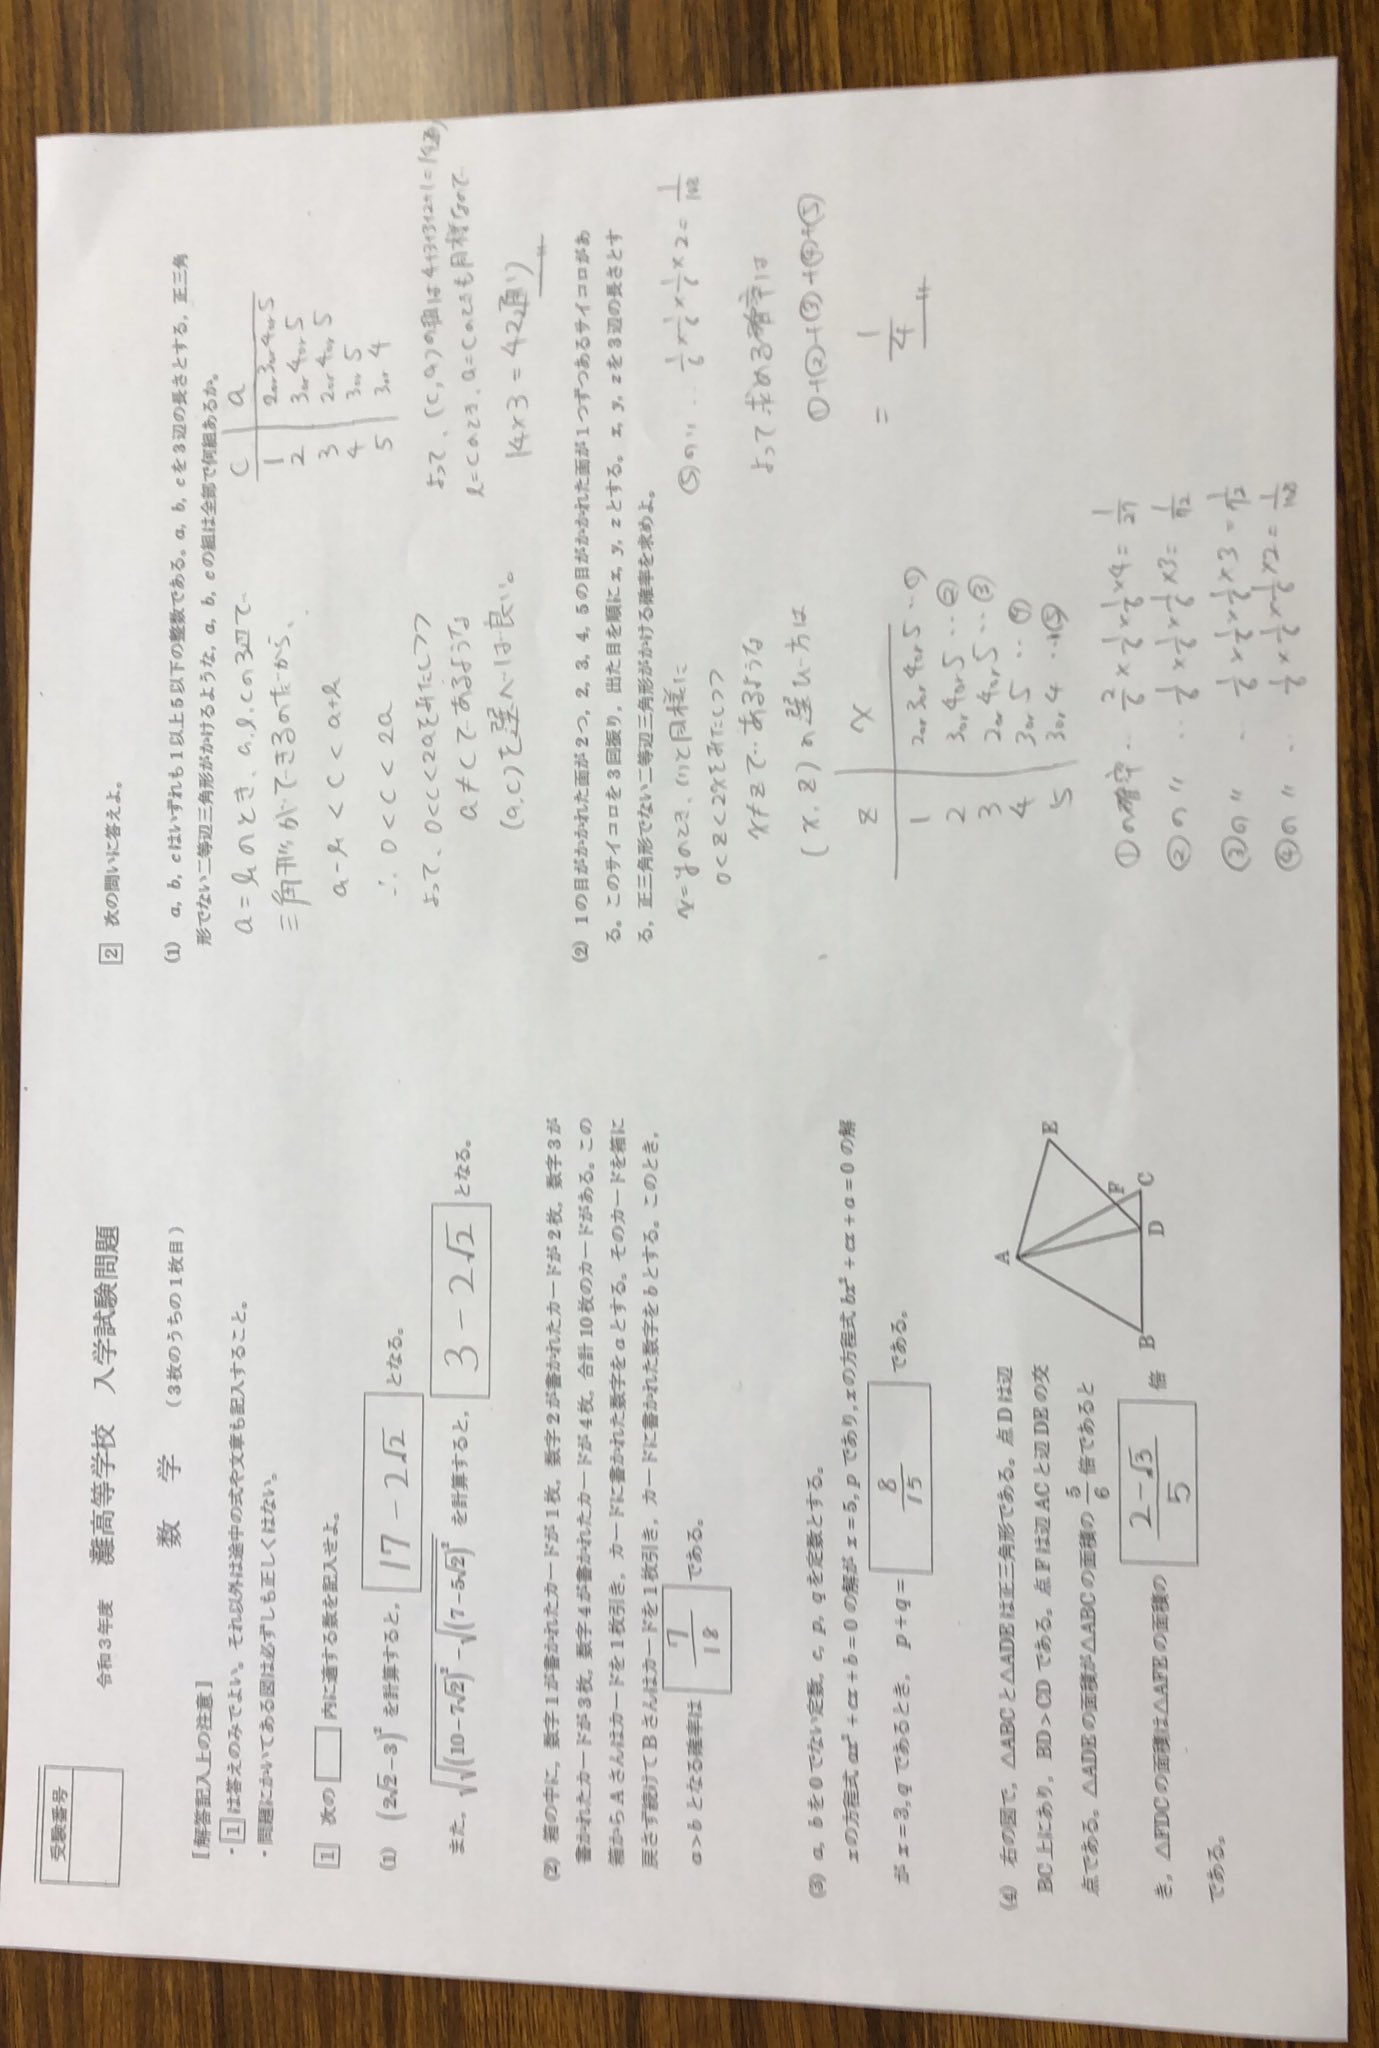 受験番号
令和3年度 灘高等学校 入学試験問題
数 学 (3枚のうちの1枚目)
[解答記入上の注意]
・1は答えのみでよい。それ以外は途中の式や文章も記入すること。
・問題にかいてある図は必ずしも正しくはない。
1 次の 内に適する数を記入せよ。
(1) (2√2-3)² を計算すると, 17-2√2 となる。
また, √√(10-7√2)² - √(7-5√2)² を計算すると, 3-2√2 となる。
(2) 箱の中に, 数字1が書かれたカードが1枚, 数字2が書かれたカードが2枚, 数字3が
書かれたカードが3枚, 数字4が書かれたカードが4枚, 合計10枚のカードがある。この
箱からAさんはカードを1枚引き, カードに書かれた数字をaとする。そのカードを箱に
戻さず続けてBさんはカードを1枚引き, カードに書かれた数字をbとする。このとき,
a>bとなる確率は 7/18 である。
(3) a, bを0でない定数, c, p, qを定数とする。
xの方程式 ax²+cx+b=0 の解が x=5, p であり, xの方程式 bx²+cx+a=0 の解
が x=3, q であるとき, p+q= 8/15 である。
(4) 右の図で, △ABCと△ADEは正三角形である。点Dは辺
BC上にあり, BD>CDである。点Fは辺ACと辺DEの交
点である。△ADEの面積が△ABCの面積の 5/6 倍であると
き, △FDCの面積は△AFEの面積の 2-√3/5 倍
である。
A
B
D
C
F
E
2 次の問いに答えよ。
(1) a, b, cはいずれも1以上5以下の整数である。a, b, cを3辺の長さとする, 正三角
形でない二等辺三角形がかけるような, a, b, cの組は全部で何組あるか。
a=bのとき、a,b,cの3辺で
三角形ができるのだから、
a-b<c<a+b
∴ 0<c<2a
よって、0<c<2aをみたしつつ
a≠cであるような
(a,c)を選べば良い。
c a
1 2or3or4or5
2 3or4or5
3 2or4or5
4 3or5
5 3or4
よって、(c,a)の組は4+3+3+2+2=14通り
b=cのとき、a=cのときも同様なので
14×3=42通り
(2) 1の目がかかれた面が2つ, 2, 3, 4, 5の目がかかれた面が1つずつあるサイコロがあ
る。このサイコロを3回振り, 出た目を順にx, y, zとする。x, y, zを3辺の長さとす
る, 正三角形でない二等辺三角形がかける確率を求めよ。
x=yのとき、(1)と同様に
0<z<2xをみたしつつ
x≠zであるような
(x,z)の選び方は
z x
1 2or3or4or5…①
2 3or4or5…②
3 2or4or5…③
4 3or5…④
5 3or4…⑤
①の確率… 2/6×1/6×1/6×4=1/27
②の〃… 1/6×1/6×1/6×3=1/72
③の〃… 1/6×1/6×1/6×3=1/72
④の〃… 1/6×1/6×1/6×2=1/108
⑤の〃… 1/6×1/6×1/6×2=1/108
よって求める確率は
①+②+③+④+⑤
=1/4